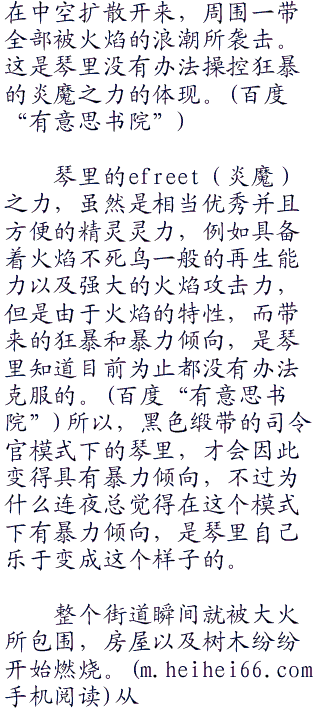 在中空扩散开来，周围一带
全部被火焰的浪潮所袭击。
这是琴里没有办法操控狂暴
的炎魔之力的体现。(百度
“有意思书院”)
琴里的efreet（炎魔）
之力，虽然是相当优秀并且
方便的精灵灵力，例如具备
着火焰不死鸟一般的再生能
力以及强大的火焰攻击力，
但是由于火焰的特性，而带
来的狂暴和暴力倾向，是琴
里知道目前为止都没有办法
克服的。(百度“有意思书
院”)所以，黑色缎带的司令
官模式下的琴里，才会因此
变得具有暴力倾向，不过为
什么连夜总觉得在这个模式
下有暴力倾向，是琴里自己
乐于变成这个样子的。
整个街道瞬间就被大火
所包围，房屋以及树木纷纷
开始燃烧。(m.heihei66.com
手机阅读)从